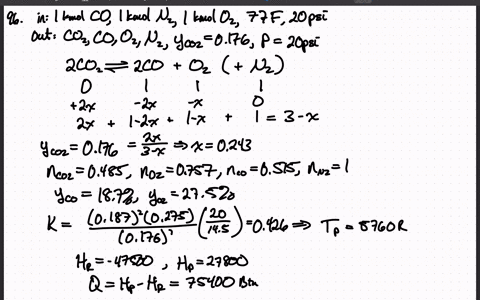 96. in: 1 kmol CO, 1 kmol N₂, 1 kmol O₂, 77F, 20psi
Out: CO₂, CO, O₂, N₂, yCO₂=0.176, P=20psi
2CO₂ ⇌ 2CO + O₂ (+ N₂)
0 1 1 1
+2x -2x -x 0
2x + 1-2x + 1-x + 1 = 3-x
yCO2 = 0.176 = 2x/3-x ⇒ x=0.243
nCO2=0.485, nO2=0.757, nCO=0.515, nN2=1
yCO = 18.7%, yO2 = 27.5%
K = (0.187)²(0.275)/(0.176)² (20/14.5) = 0.426 ⇒ Tp = 5760R
HR = -47500, Hp = 27800
Q = Hp - HR = 75400 Btu